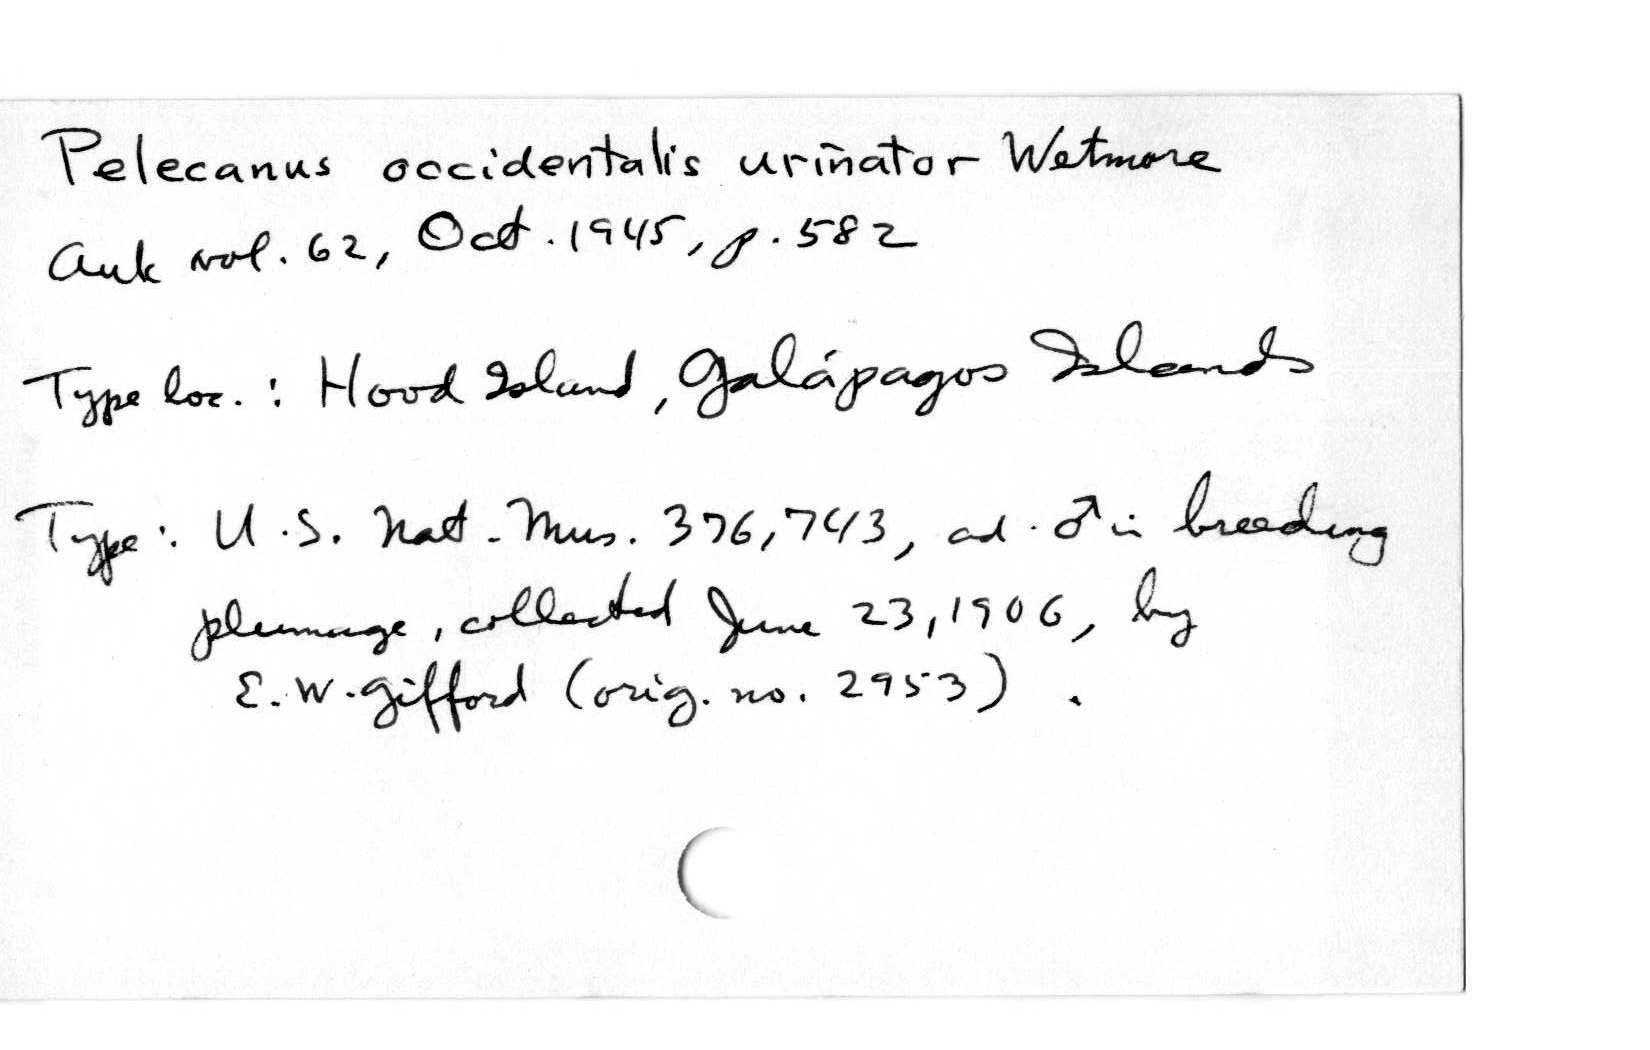 Pelecanus occidentalis urinator Wetmore
Auk vol. 62, Oct. 1945, p. 582
Type loc. : Hood Island, Galápagos Islands
Type : U.S. Nat. Mus. 376,743, ad. ♂ in breeding
plumage, collected June 23, 1906, by
E. W. Gifford (orig. no. 2953) .